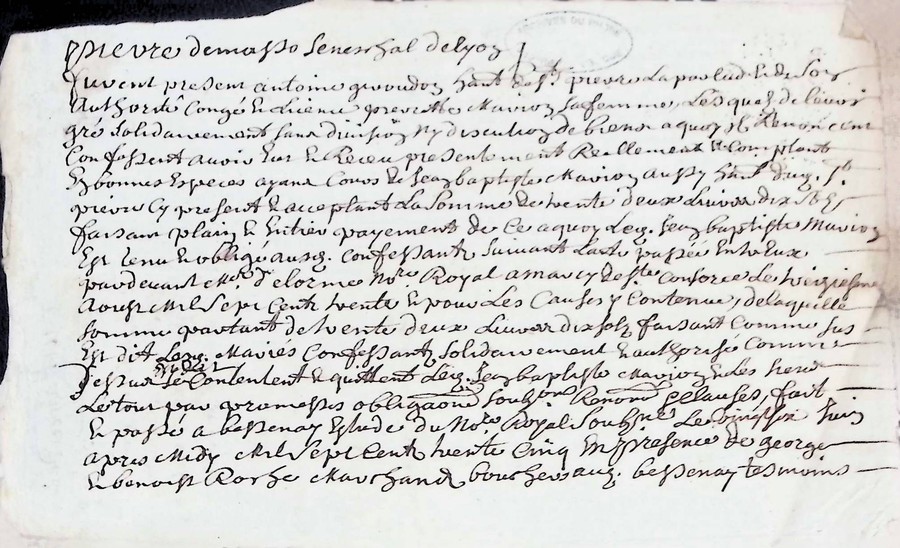 pierre demasso seneschal de lyon
furent present antoine giroudon habt de st pierre la palud et de son
Authorité Congé et licence pierrette Marion sa femme, Lesquels de leurs
gré solidairement sans division ny discution de biens a quoy ils Renoncent
Confessent avoir Eut et Receu presentement Reellement et Comptant
En bonnes Especes ayans Cours de Jean baptiste Marion aussy habt dud. st
pierre Cy present et acceptant La somme de trente deux Livres dix sols
faisant plain et Entier payement de Ce a quoy Led. Jean baptiste Marion
Est tenu et obligé ausd. Confessants suivant Lacte passée Entre Eux
pardevant Me delorme Nore Royal a marcy de ste Consorce Le treiziesme
Aoust Mil Sept Cents trente et pour Les Causes y Contenue, de laquelle
somme partant de trente deux Livres dix sols faisant Comme sus
Est dit Lesd. Mariés Confessants solidairement et authorisé Comme
dessus se Contentent et quittent Led. Jean baptiste Marion et Les siens
Le tout par promesses obligaons soubzons Renons et Clauses, fait
et passé a bessenay Estude du Nore Royal Soubzne Le vingt six Juin
apres Midy Mil Sept Cents trente Cinq En presence de george
et benoist Roche Marchand bouchers aud. bessenay tesmoins